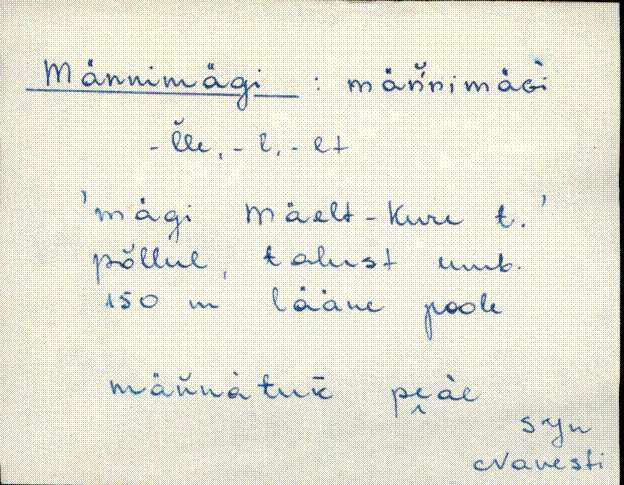 Männimägi : mäň̀nimäGì
- l̆le, - l, - lt
'mägi Mäelt-Kure t.'
põllul, talust umb.
150 m lääne poole
mäňnàtuk̄ peàl
syn
Navesti